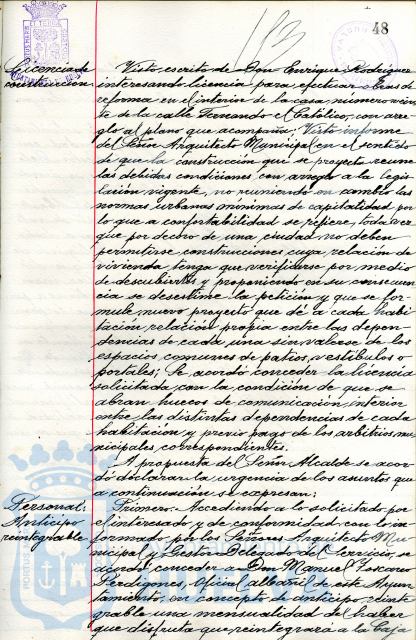 48
Licencia de
construcción.
Visto escrito de Don Enrique Rodríguez
interesando licencia para efectuar obras de
reforma en el interior de la casa, número vein-
te de la calle Fernando el Católico, con arre-
glo al plano que acompaña; Visto informe
del Señor Arquitecto Municipal en el sentido
de que la construcción que se proyecta reune
las debidas condiciones con arreglo a la legis-
lación vigente, no reuniendo en cambio las
normas urbanas mínimas de capitalidad por
lo que a confortabilidad se refiere, toda vez
que por decoro de una ciudad no deben
permitirse construcciones cuya relación de
vivienda tenga que verificarse por medio
de descubiertos y proponiendo en su consecuen-
cia se desestime la petición y que se for-
mule nuevo proyecto que dé a cada habi-
tación relación propia entre las depen-
dencias de cada una sin valerse de los
espacios comunes de patios, vestíbulos o
portales; Se acordó conceder la licencia
solicitada con la condición de que se
abran huecos de comunicación interior
entre las distintas dependencias de cada
habitación y previo pago de los arbitrios mu-
nicipales correspondientes.
A propuesta del Señor Alcalde se acor-
dó declarar la urgencia de los asuntos que
a continuación se expresan:
Personal:
Anticipo
reintegrable
Primero.- Accediendo a lo solicitado por
el interesado y de conformidad con lo in-
formado por los Señores Arquitecto Mu-
nicipal y Gestor Delegado del Servicio, se
acordó conceder a Don Manuel
Perdigones, Oficial albañil de este Ayun-
tamiento, en concepto de anticipo reinte-
grable una mensualidad del haber
que disfruta que reintegrará a la Caja